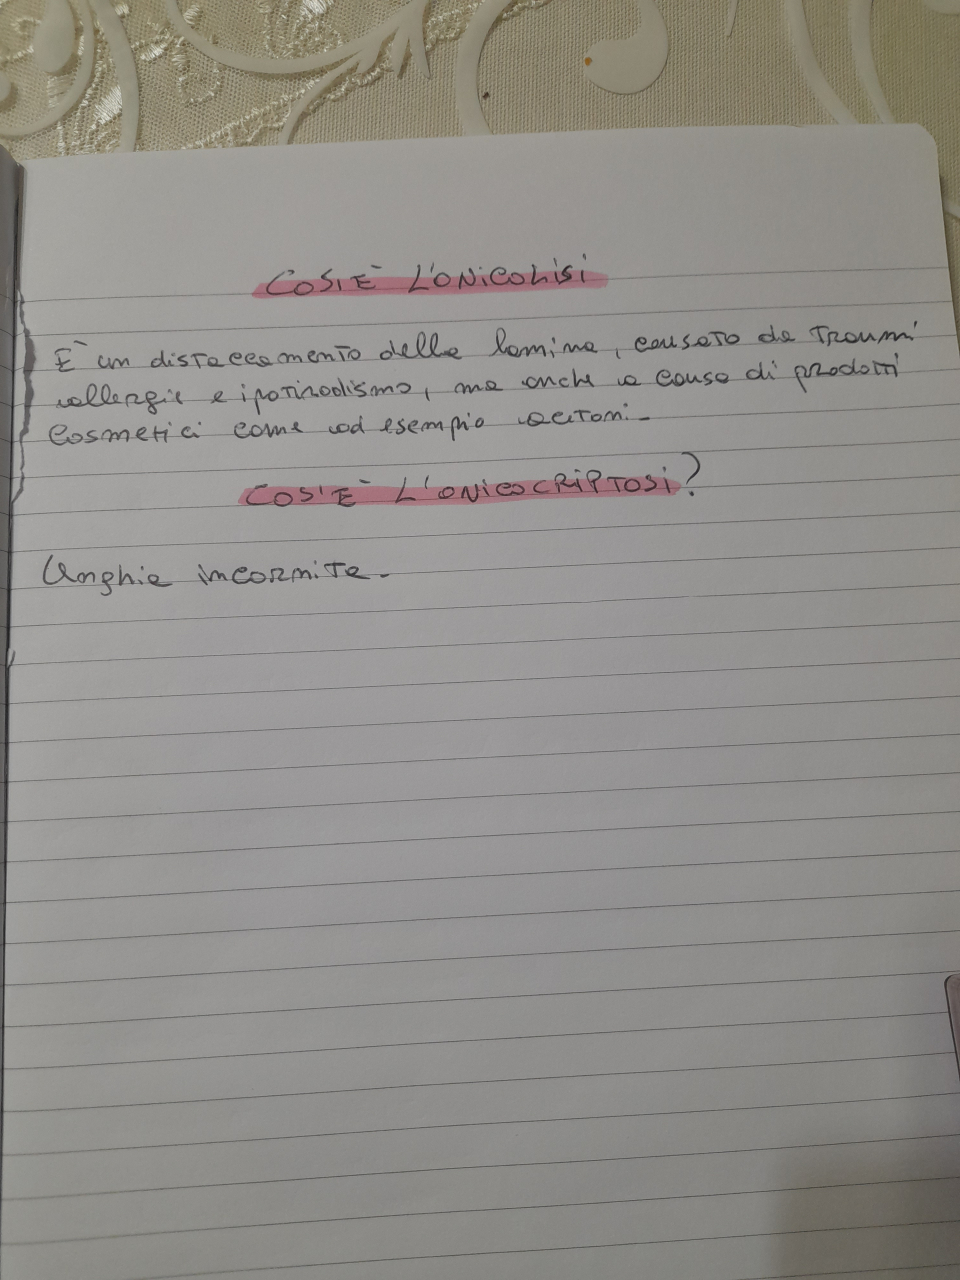 COS'È L'ONICOLISI
È un distaccamento della lamina, causato da Traumi
allergie e ipotiroidismo, ma anche a causa di prodotti
Cosmetici come ad esempio acetoni.
COS'È L'ONICOCRIPTOSI?
Unghia incarnita.